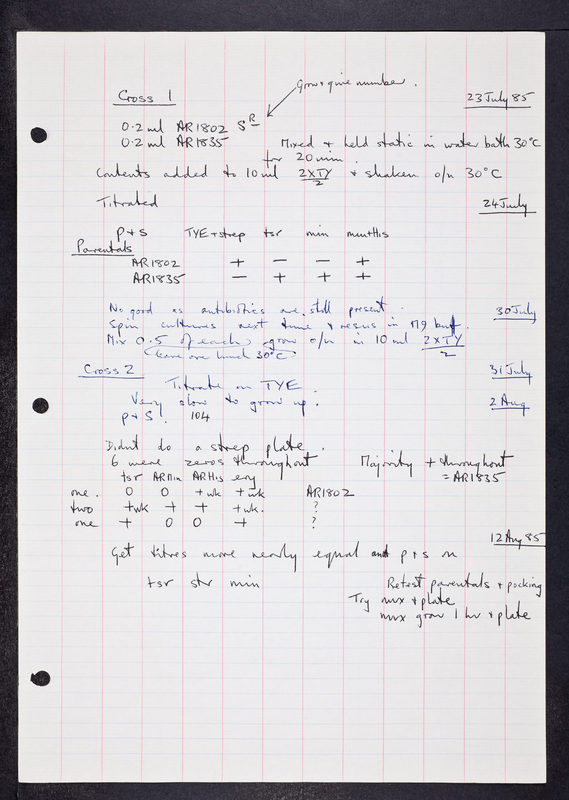 Grow & give number.
Cross 1
23 July 85
0.2 ml AR1802 S^R
0.2 ml AR1835 Mixed & held static in water bath 30°C
for 20 min.
Contents added to 10 ml 2XTY/2 & shaken o/n 30°C
Titrated
24 July
p+S TYE+strep tsr min min+His
Parentals
AR1802 + − − +
AR1835 − + + +
No good as antibiotics are still present.
30 July
Spin cultures next time & resus in M9 buf.
Mix 0.5 of each, grow o/n in 10 ml 2XTY/2
leave one hour 30°C
Cross 2
31 July
Titrate on TYE.
Very slow to grow up.
2 Aug
p+S. 104
Didnt do a strep plate.
6 were zeros throughout
Majority + throughout
= AR1835
tsr ARMin ARHis ery
one. 0 0 +wk +wk AR1802
two +wk + + +wk. ?
one + 0 0 + ?
12 Aug 85
Get titres more nearly equal and p+s on
tsr str min
Retest parentals + pocking
Try mix & plate
mix grow 1 hr & plate